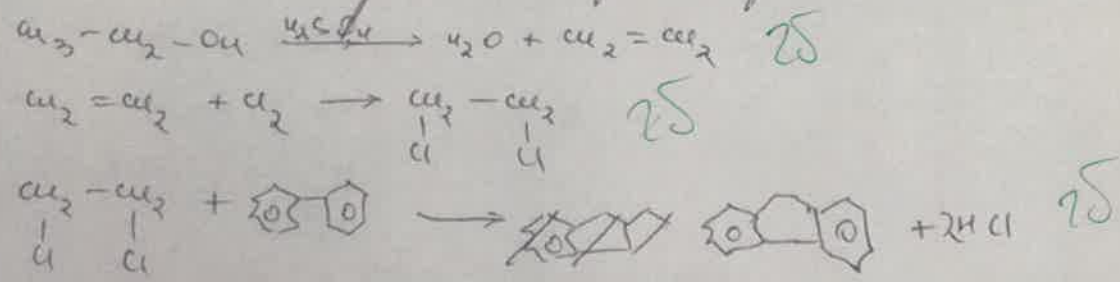 CH3-CH2-OH H2SO4 → H2O + CH2=CH2 2Б
CH2=CH2 + Cl2 → CH2-CH2 2Б
Cl Cl
CH2-CH2 + → + 2HCl 2Б
Cl Cl